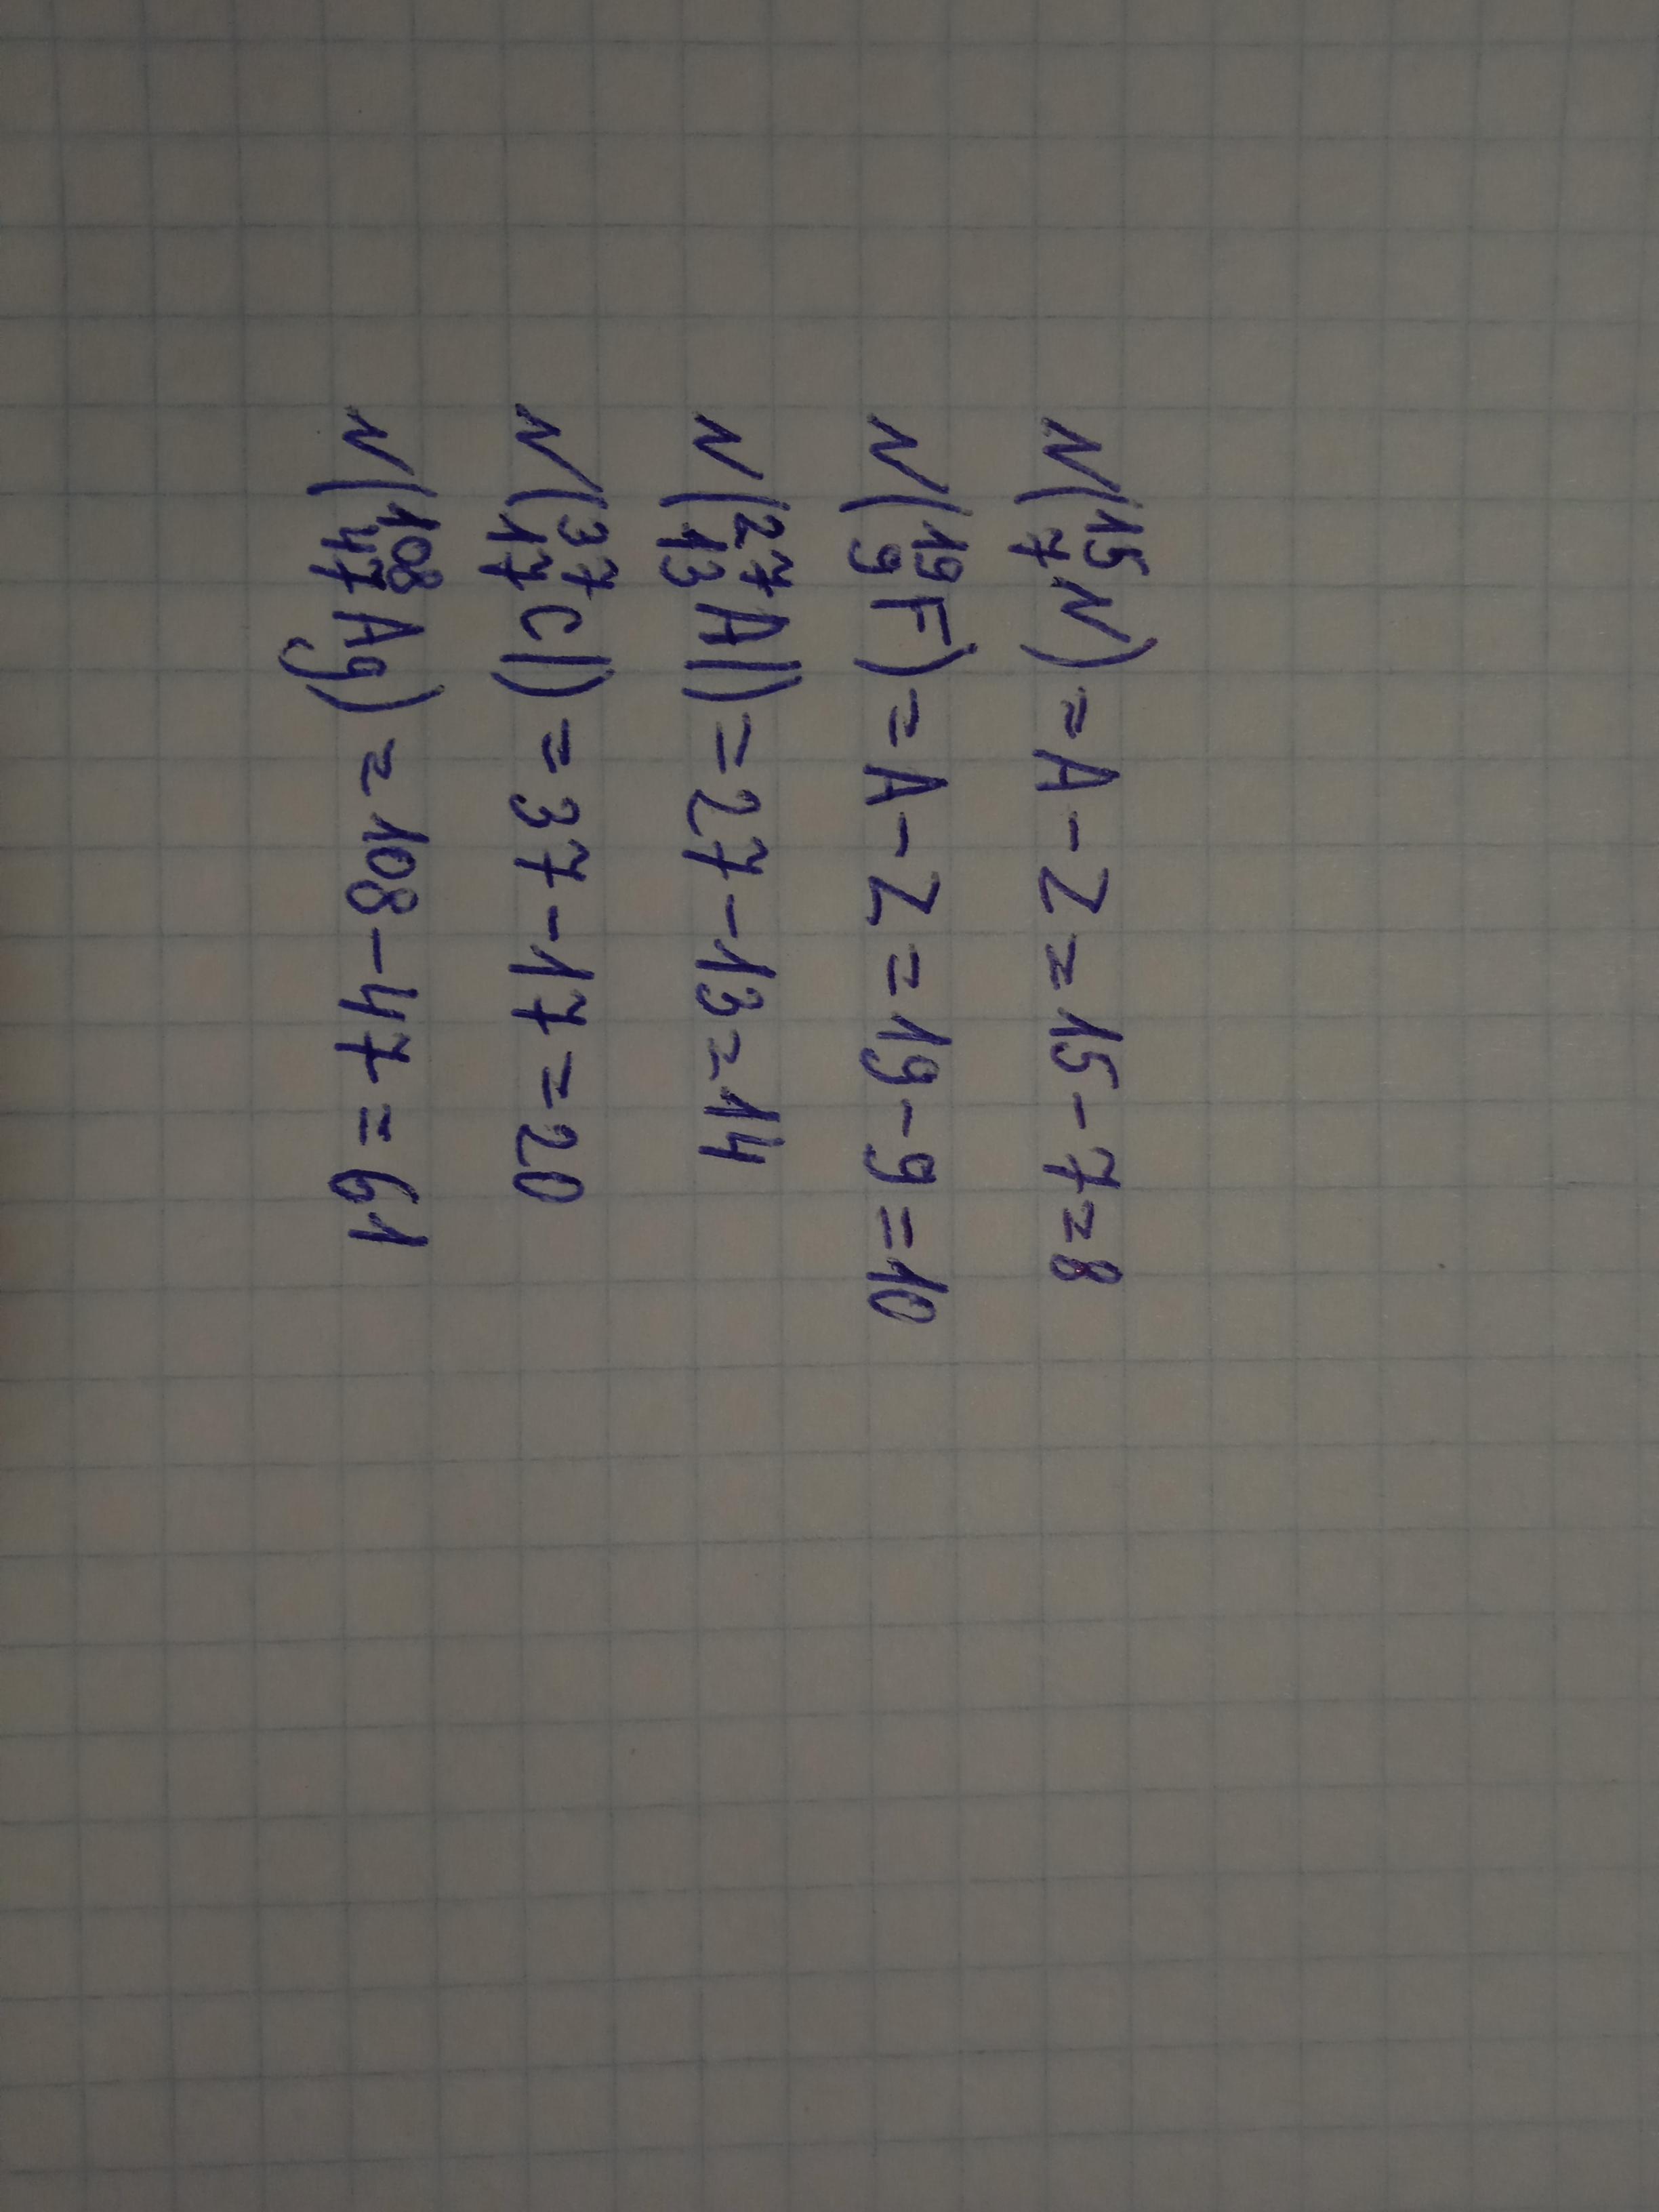 N(¹⁵₇N) = A - Z = 15 - 7 = 8
N(¹⁹₉F) = A - Z = 19 - 9 = 10
N(²⁷₁₃Al) = 27 - 13 = 14
N(³⁷₁₇Cl) = 37 - 17 = 20
N(¹⁰⁸₄₇Ag) = 108 - 47 = 61